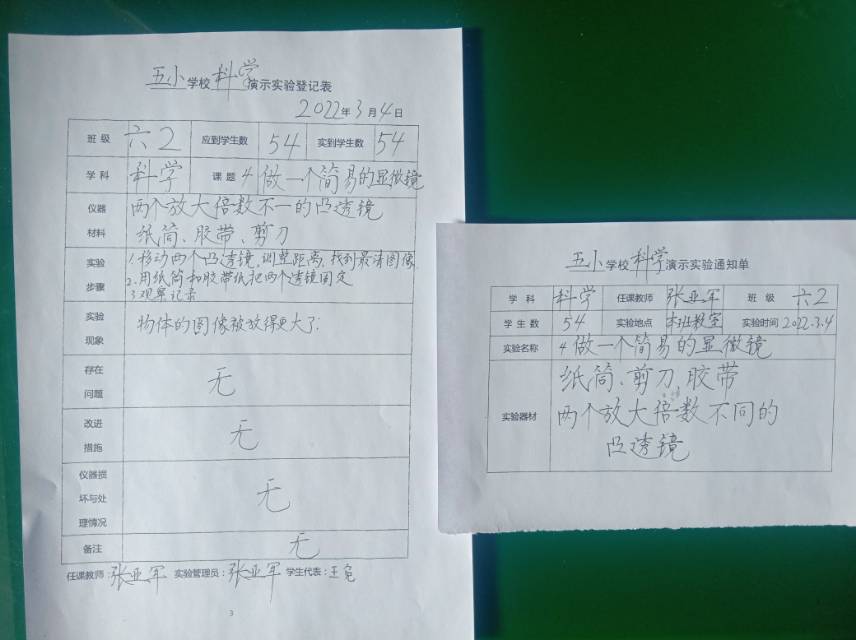 五小学校科学演示实验登记表
2022年3月4日
班级 六2 应到学生数 54 实到学生数 54
学科 科学 课题 4 做一个简易的显微镜
仪器材料 两个放大倍数不一的凸透镜
纸筒、胶带、剪刀
实验步骤 1.移动两个凸透镜,调整距离,找到最清图像
2.用纸筒和胶带纸把两个透镜固定
3.观察记录
实验现象 物体的图像被放得更大了.
存在问题 无
改进措施 无
仪器损坏与处理情况 无
备注 无
任课教师:张亚军 实验管理员:张亚军 学生代表:王
3
五小学校科学演示实验通知单
学科 科学 任课教师 张亚军 班级 六2
学生数 54 实验地点 本班教室 实验时间 2022.3.4
实验名称 4 做一个简易的显微镜
实验器材 纸筒、剪刀 胶带
两个放大倍数不同的
凸透镜